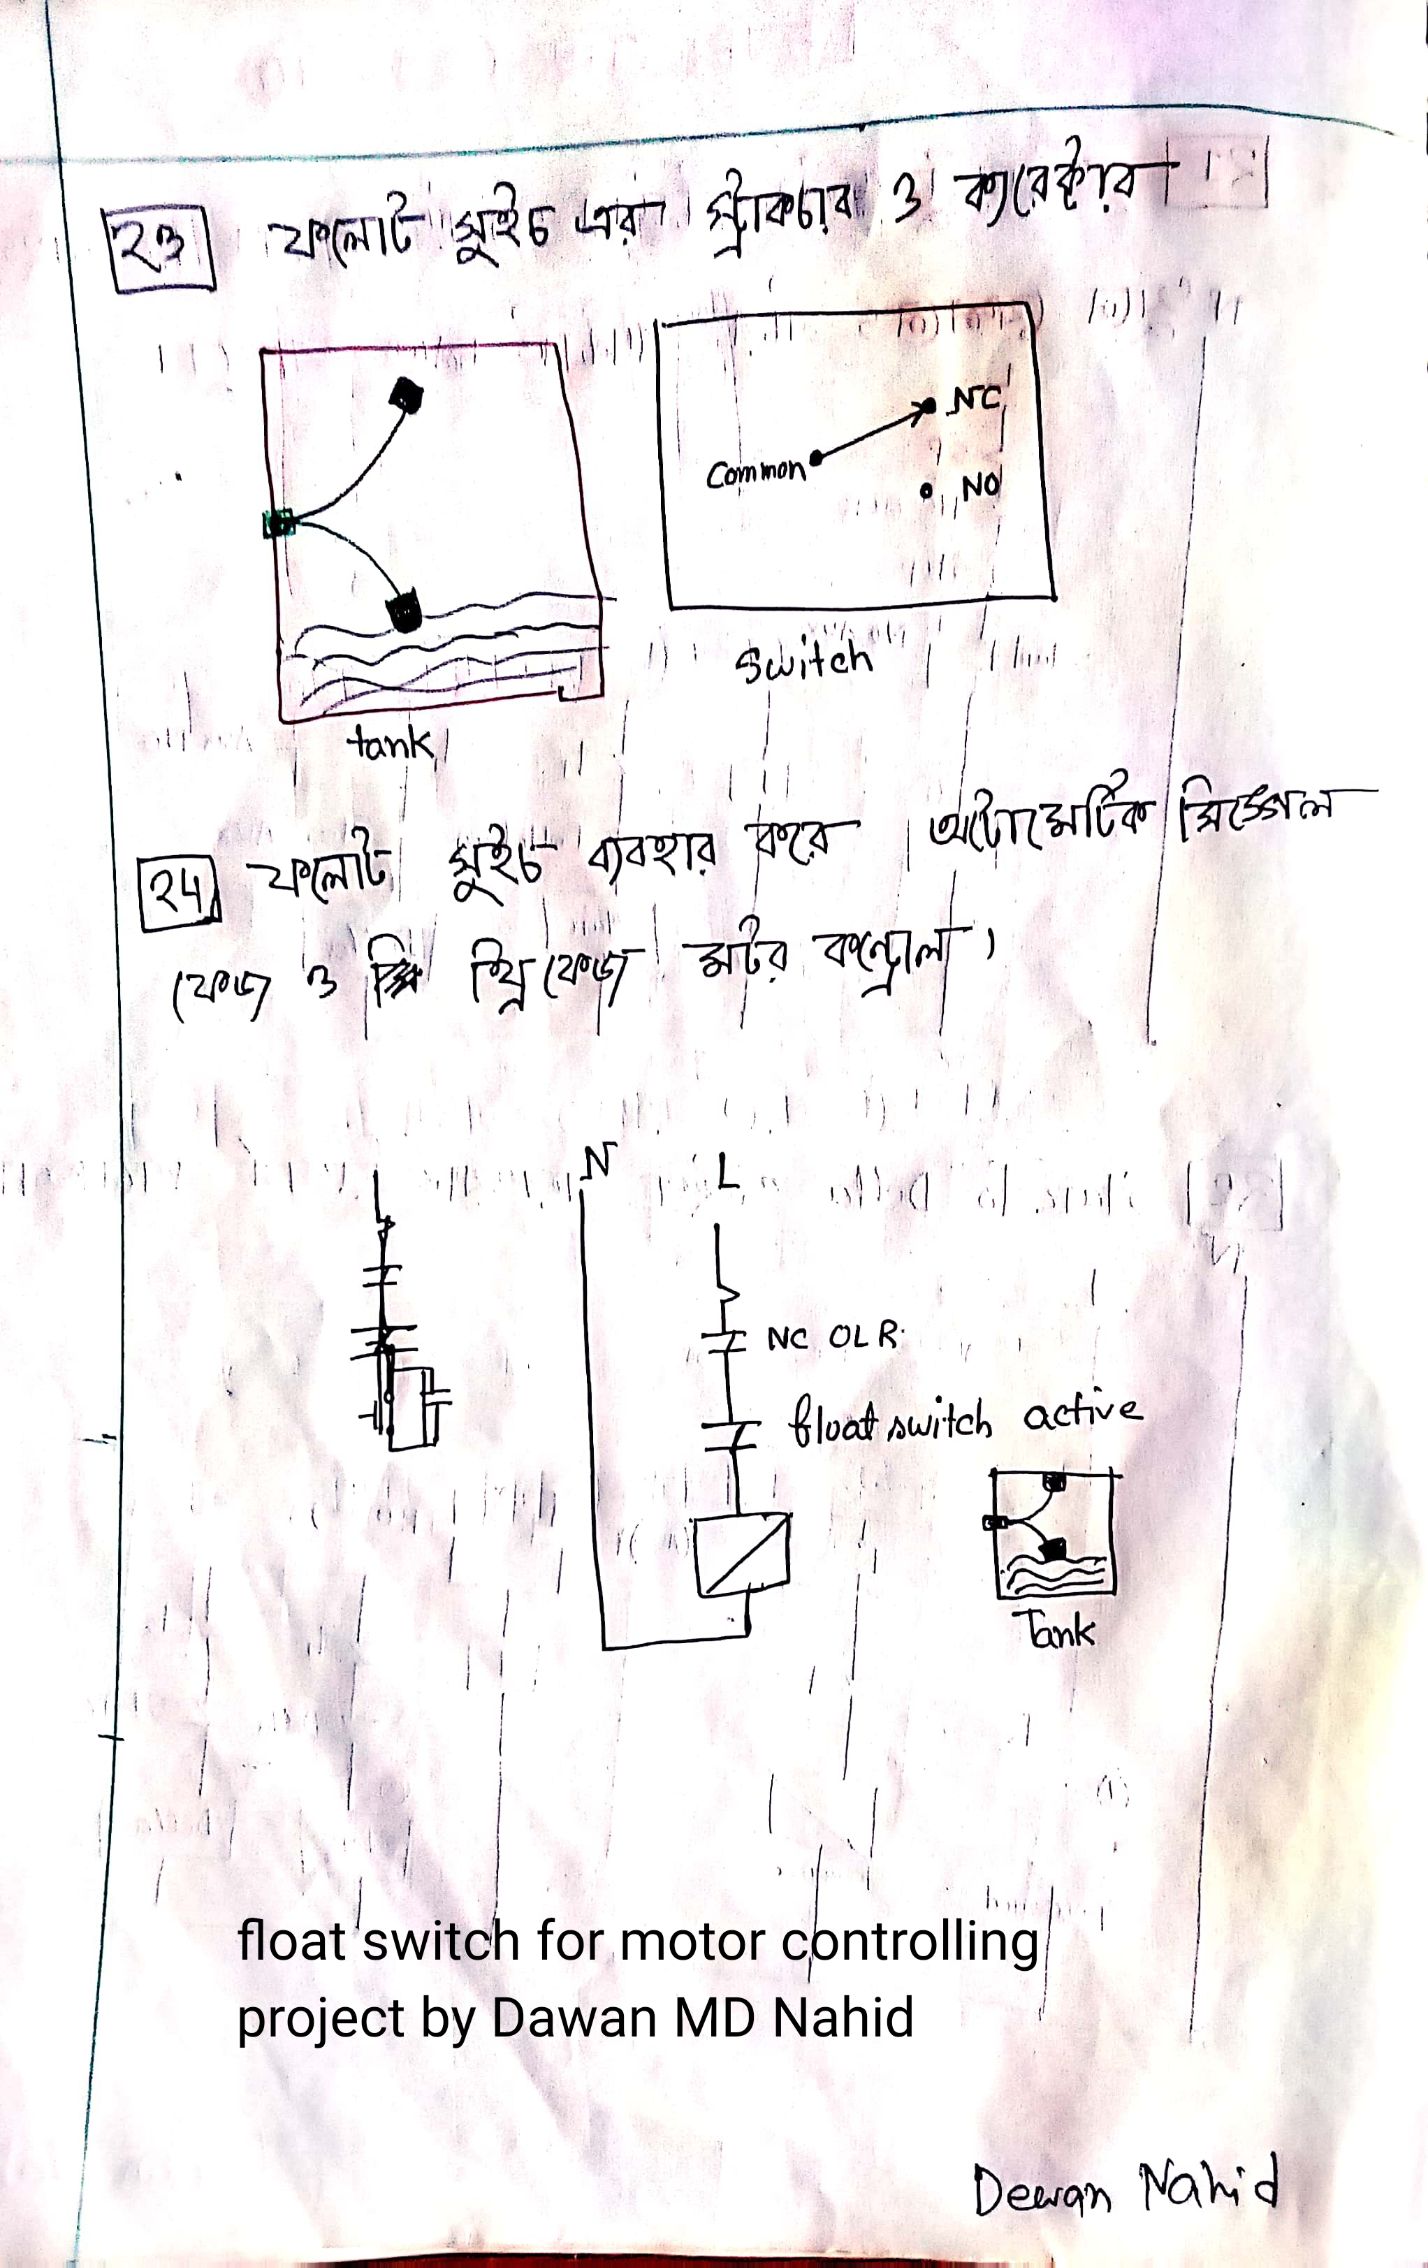 ২৩ ফলোট সুইচ এর স্ট্রাকচার ও ক্যারেক্টার
NC
Common
NO
Switch
tank
২৪ ফলোট সুইচ ব্যবহার করে অটোমেটিক সিঙ্গেল
ফেজ ও থ্রি ফেজ মটর কন্ট্রোল।
N L
NC OLR
float switch active
Tank
float switch for motor controlling
project by Dawan MD Nahid
Dewan Nahid